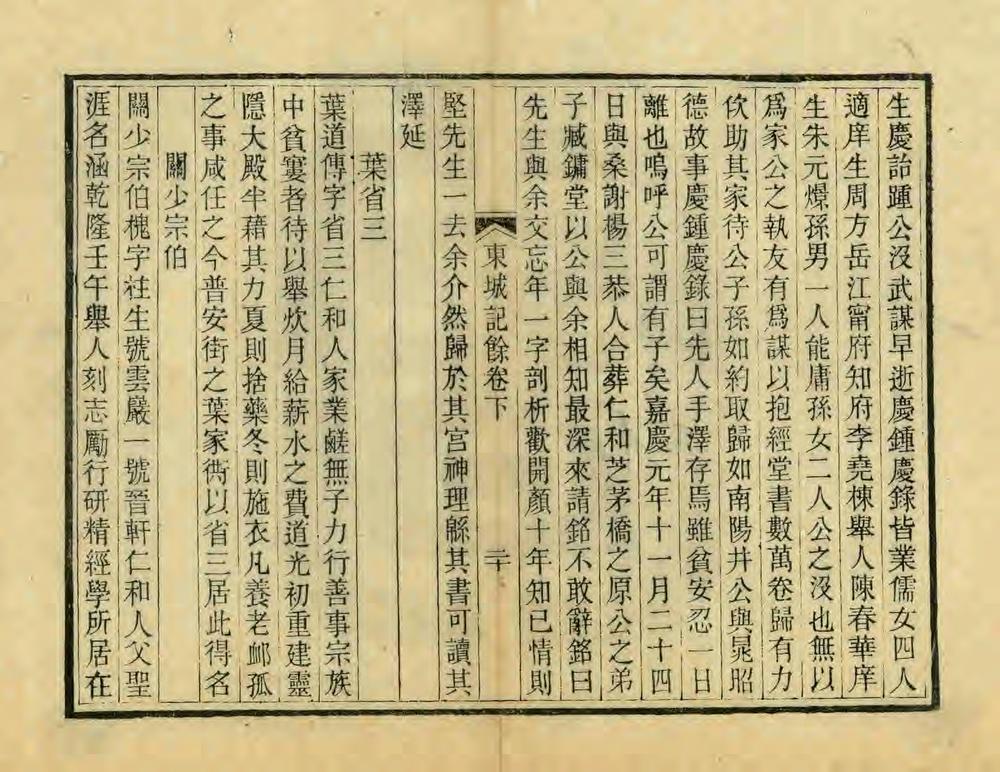 生慶詒踵公沒武謀早逝慶鍾慶錄皆業儒女四人
適庠生周方岳江甯府知府李堯棟舉人陳春華庠
生朱元燝孫男一人能庸孫女二人公之沒也無以
爲家公之執友有爲謀以抱經堂書數萬卷歸有力
佽助其家待公子孫如約取歸如南陽井公與晁昭
德故事慶鍾慶錄曰先人手澤存焉雖貧安忍一日
離也嗚呼公可謂有子矣嘉慶元年十一月二十四
日與桑謝楊三恭人合葬仁和芝茅橋之原公之弟
子臧鏞堂以公與余相知最深來請銘不敢辭銘曰
先生與余交忘年一字剖析歡開顏十年知已情則
東城記餘卷下
二十
堅先生一去余介然歸於其宮神理緜其書可讀其
澤延
葉省三
葉道傳字省三仁和人家業鹺無子力行善事宗族
中貧窶者待以舉炊月給薪水之費道光初重建靈
隱大殿半藉其力夏則捨藥冬則施衣凡養老卹孤
之事咸任之今普安街之葉家衖以省三居此得名
關少宗伯
關少宗伯槐字柱生號雲巖一號晉軒仁和人父聖
涯名涵乾隆壬午舉人刻志勵行研精經學所居在